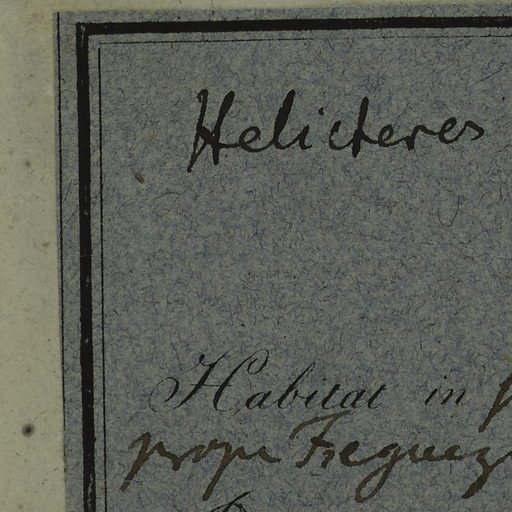 Helicteres
Habitat in
prope Freguez